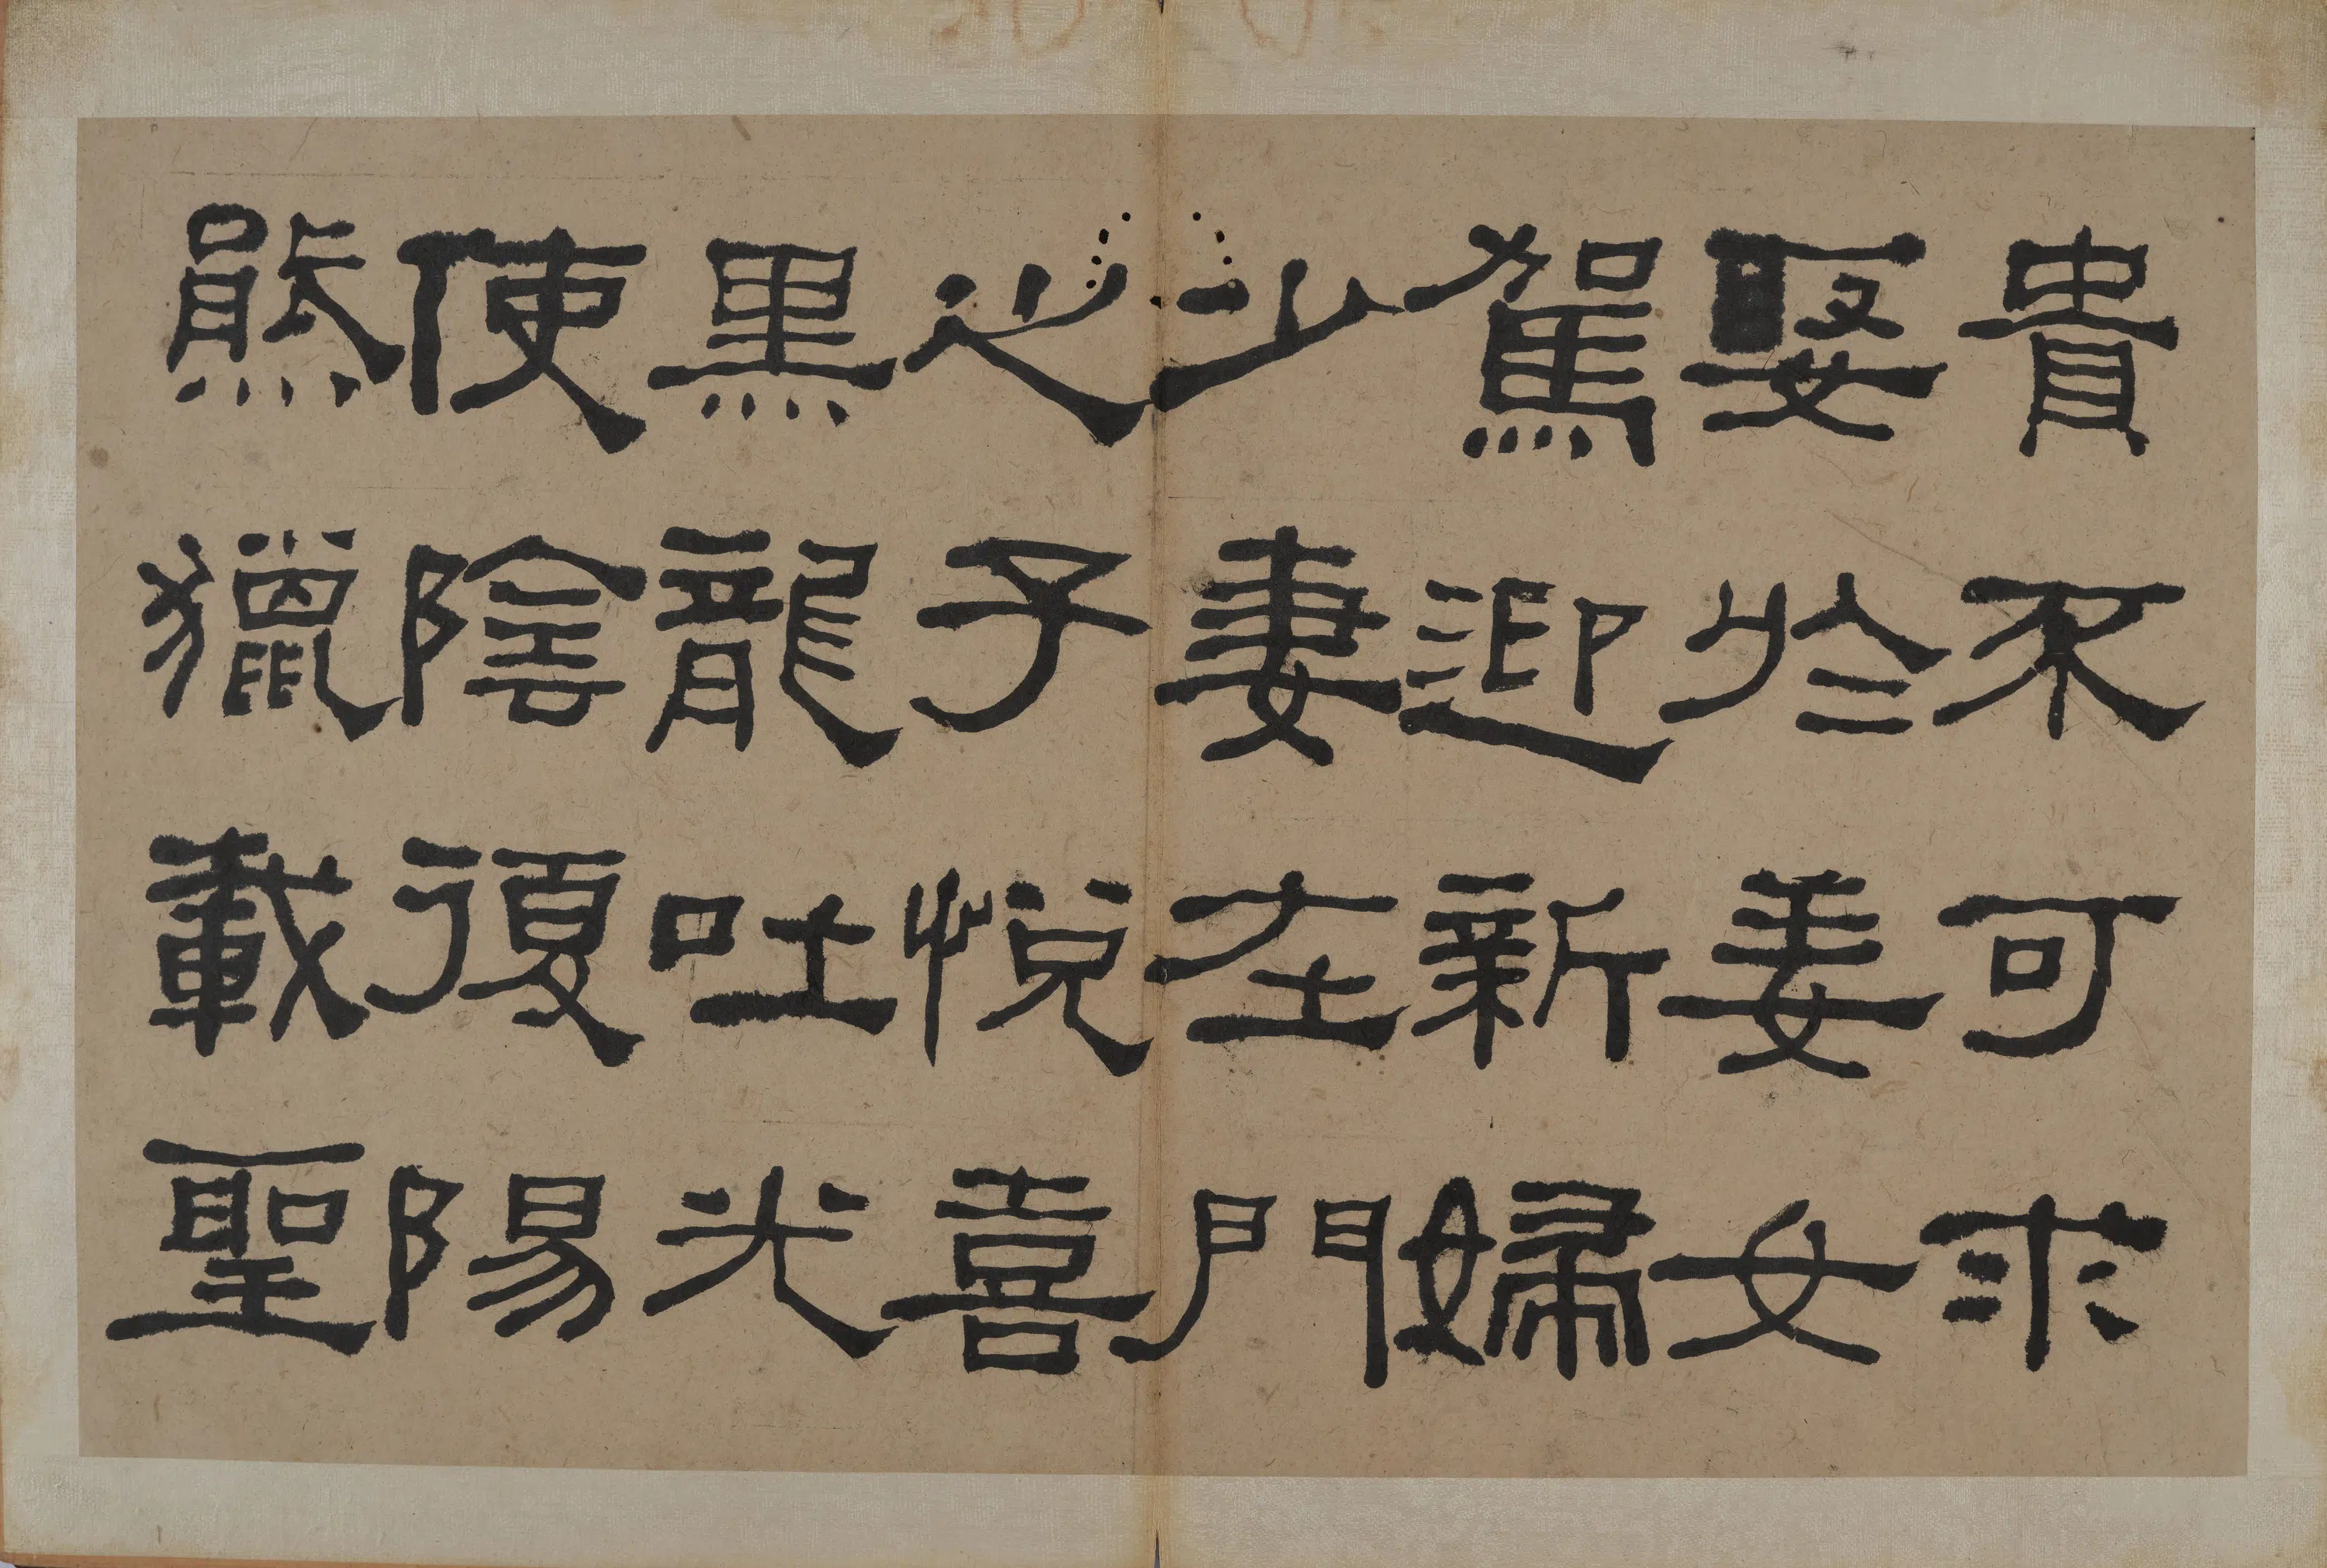 貴不可求
娶於姜女
駕迎新婦
少妻在門
之子悅喜
黑龍吐光
使陰復陽
熊獵載聖